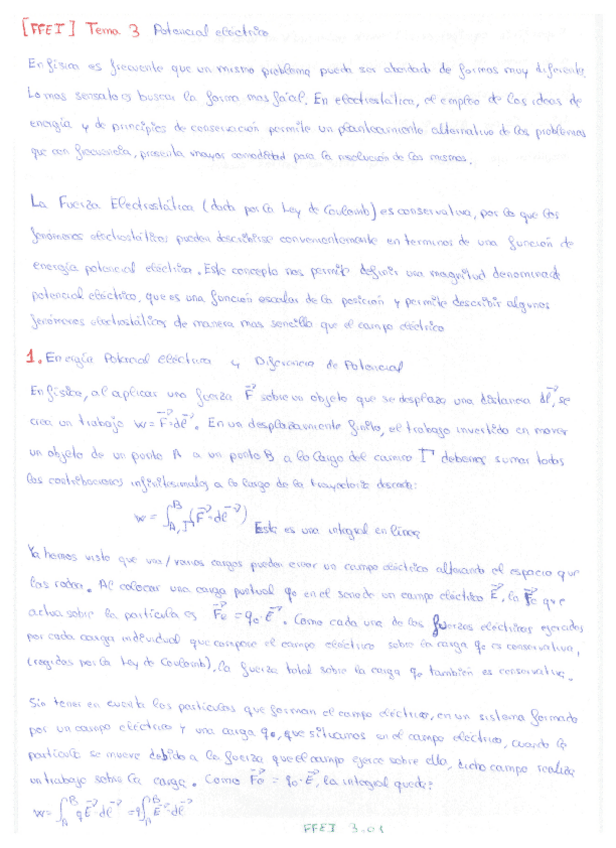 [FFEI] Tema 3 Potencial eléctrico
En física es frecuente que un mismo problema pueda ser abordado de formas muy diferente.
Lo mas sensato es buscar la forma mas fácil. En electrostática, el empleo de las ideas de
energía y de principios de conservación permite un planteamiento alternativo de los problemas
que con frecuencia, presenta mayor comodidad para la resolución de los mismos.
La Fuerza Electrostática (dada por la Ley de Coulomb) es conservativa, por lo que los
fenómenos electrostáticos pueden describirse convenientemente en terminos de una función de
energía potencial eléctrica. Este concepto nos permite definir una magnitud denominada
potencial eléctrico, que es una función escalar de la posición y permite describir algunos
fenómenos electrostáticos de manera mas sencilla que el campo eléctrico
1. Energía Potencial eléctrica y Diferencia de Potencial
En física, al aplicar una fuerza F⃗ sobre un objeto que se desplaza una distancia dl⃗, se
crea un trabajo w = F⃗·dl⃗. En un desplazamiento finito, el trabajo invertido en mover
un objeto de un punto A a un punto B a lo largo del camino Γ debemos sumar todas
las contribuciones infinitesimales a lo largo de la trayectoria
w = ∫_{A,Γ}^{B} (F⃗·dl⃗) Este es una integral en línea
Ya hemos visto que una/varias cargas pueden crear un campo eléctrico alterando el espacio que
las rodea. Al colocar una carga puntual q₀ en el seno de un campo eléctrico E⃗, la F⃗e que
actua sobre la partícula es F⃗e = q₀·E⃗. Como cada una de las fuerzas eléctricas ejercidas
por cada carga individual que compone el campo eléctrico sobre la carga q₀ es conservativa,
(regidas por la Ley de Coulomb), la fuerza total sobre la carga q₀ también es conservativa.
Sin tener en cuenta las partículas que forman el campo eléctrico, en un sistema formado
por un campo eléctrico y una carga q₀, que situamos en el campo eléctrico, cuando la
partícula se mueve debido a la fuerza que el campo ejerce sobre ella, dicho campo realiza
un trabajo sobre la carga. Como F⃗e = q₀·E⃗, la integral queda:
w = ∫_A^B qE⃗ dl⃗ = q∫_A^B E⃗ dl⃗
FFEI 3.01